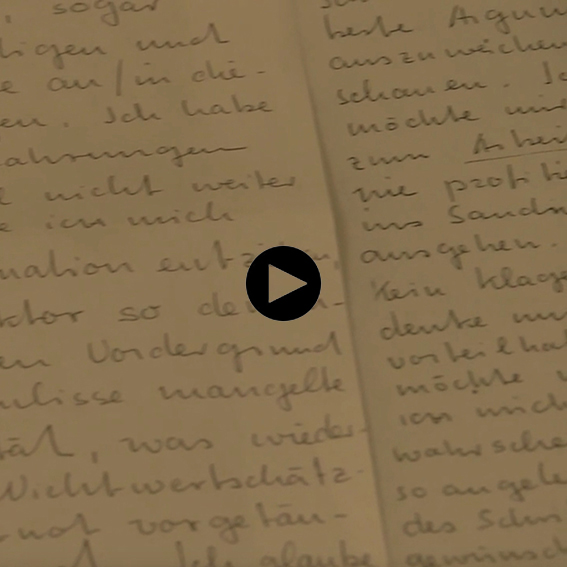 sogar
ligen und
e an/in die-
en. Ich habe
ahrungen
nicht weiter
e ich mich
mation
ktor so
en Vordergrund
ulisse mangelte
tät, was wieder-
Nichtwertschätz-
not vorgetäu-
Ich glaube
beste Argum
auszuweichen
schauen. Ic
möchte mir
zum Arbei
nie profitie
ins
ausgehen.
Kein Klage
denke nu
vorteilha
möchte
ich mich
wahrsche
so angele
des Schr
gewünsch